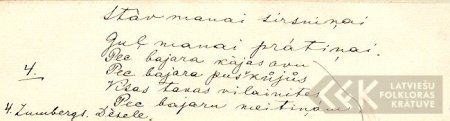 Stāv manai sirsniņai
Guļ manai prātiņai.
4. Pēc bajara kājas avu
Pēc bajara puškūjūs
Višas tavas vilainītes
Pēc bajaru meitiņām
4. Zumbergs. Dēsele.
LATVIEŠU
FOLKLORAS
KRĀTUVE